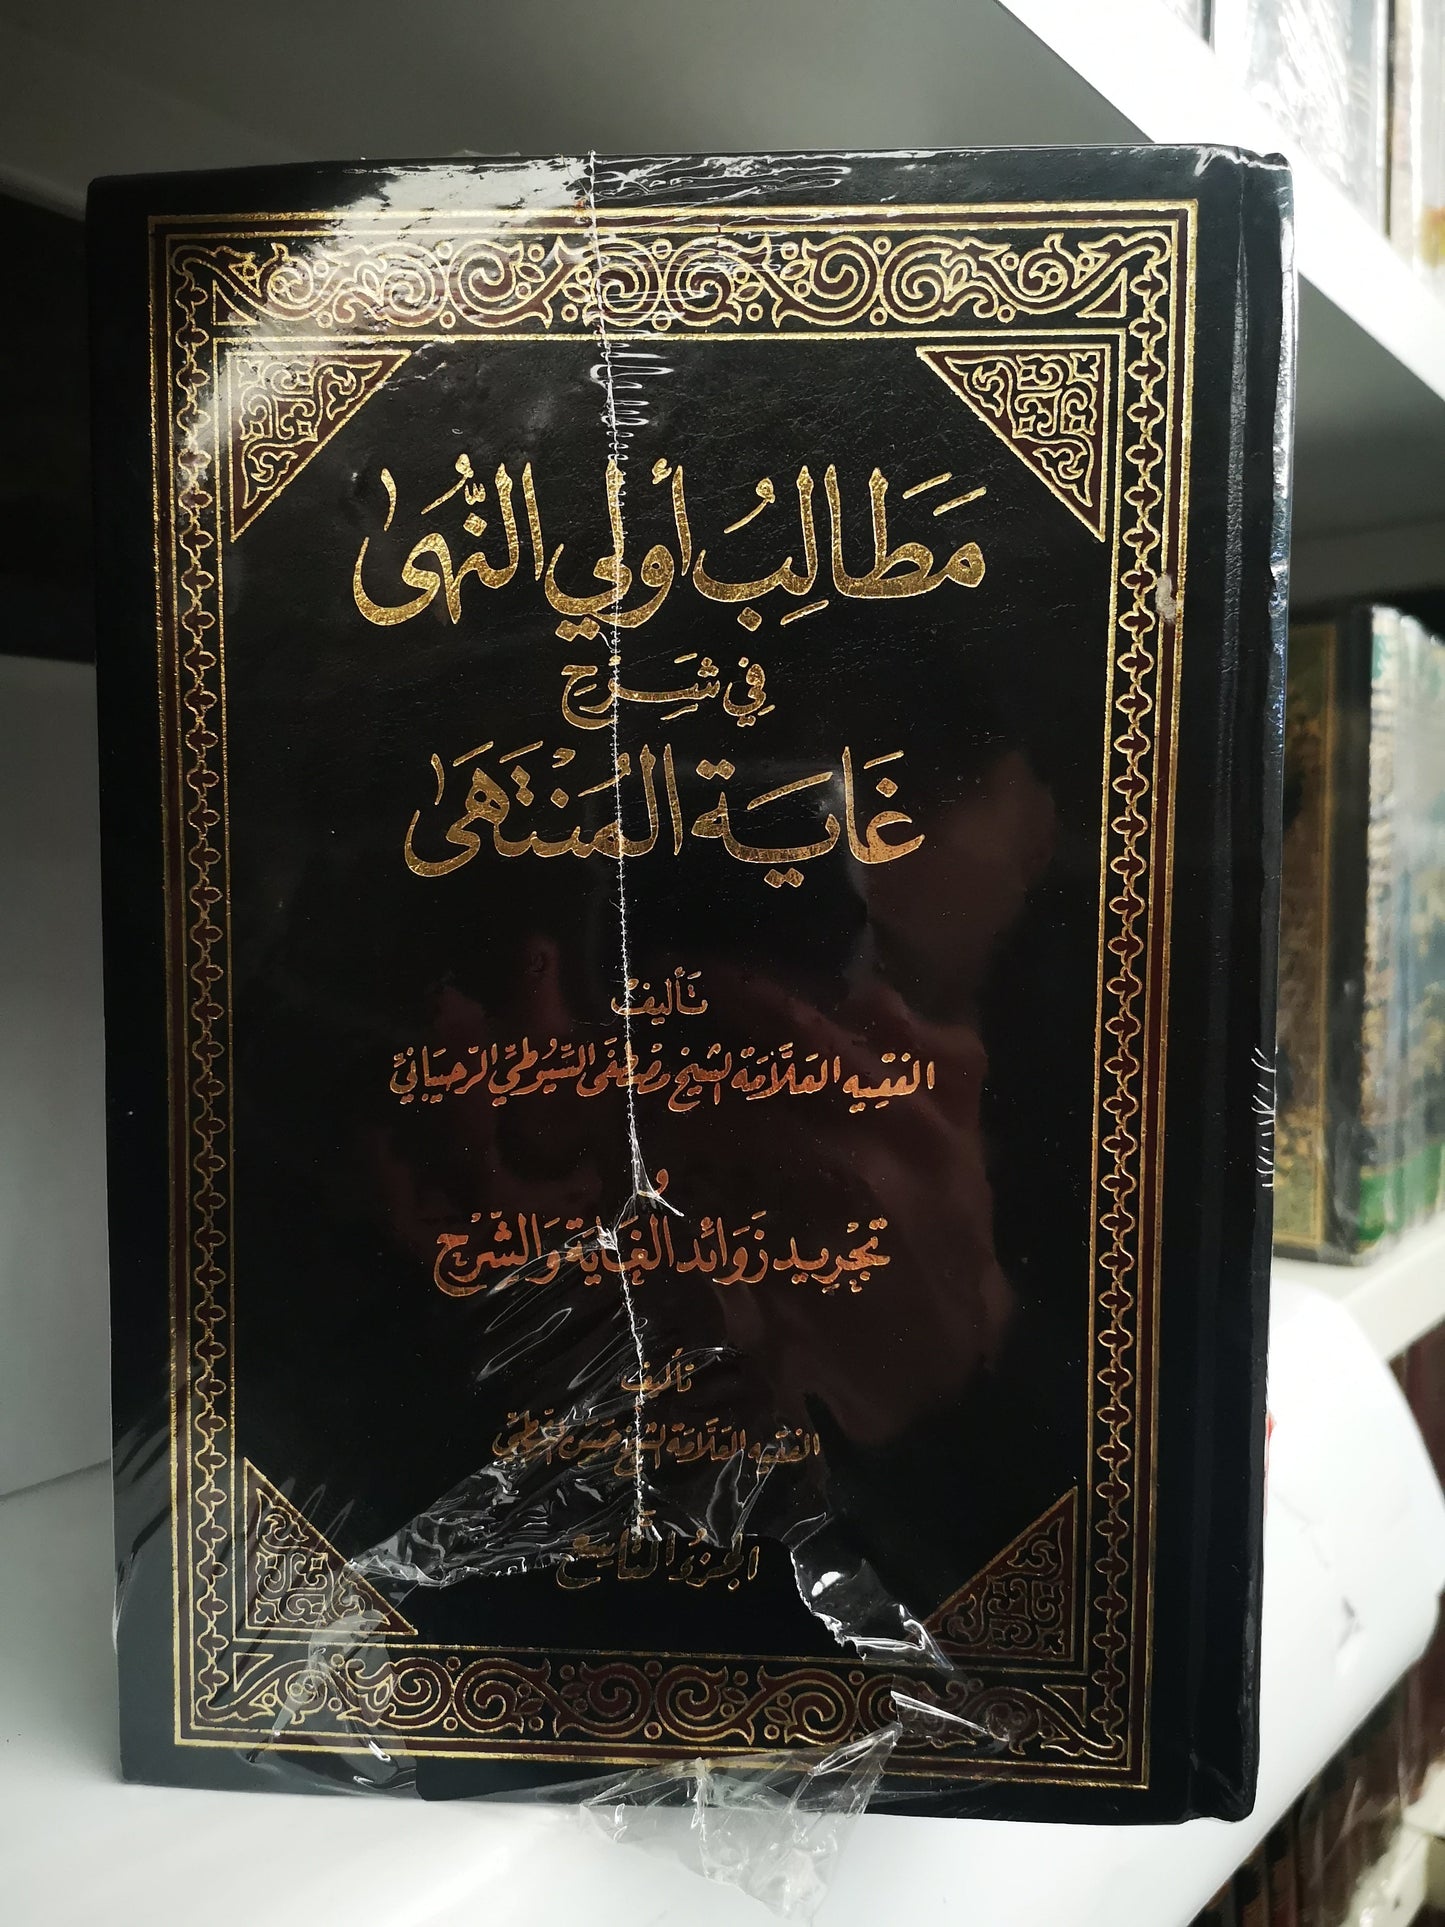 مَطَالِبُ أولي النُّهَى
فِي شَرْحِ
غَايَةِ المُنْتَهَى
تَأليفْ
الفقِيه العَلَّامَة الشيخ مصْطفَى السّيُوطيّ الرّحيبَانيّ
و
تَجْرِيد زَوَائد الغَايَة وَالشّرْح
تأليف
الفقيه العَلَّامَة الشيخ حسَن الشطي
الجزءُ التَّاسِع